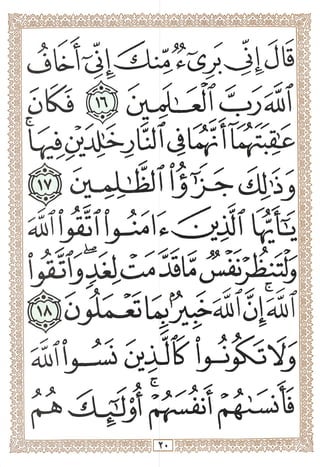 قَالَ إِنِّى بَرِىٓءٌ مِّنكَ إِنِّىٓ أَخَافُ
ٱللَّهَ رَبَّ ٱلْعَٰلَمِينَ ١٦ فَكَانَ
عَٰقِبَتَهُمَآ أَنَّهُمَا فِى ٱلنَّارِ خَٰلِدَيْنِ فِيهَا ۚ
وَذَٰلِكَ جَزَٰٓؤُا۟ ٱلظَّٰلِمِينَ ١٧
يَٰٓأَيُّهَا ٱلَّذِينَ ءَامَنُوا۟ ٱتَّقُوا۟ ٱللَّهَ
وَلْتَنظُرْ نَفْسٌ مَّا قَدَّمَتْ لِغَدٍ ۖ وَٱتَّقُوا۟
ٱللَّهَ ۚ إِنَّ ٱللَّهَ خَبِيرٌۢ بِمَا تَعْمَلُونَ ١٨
وَلَا تَكُونُوا۟ كَٱلَّذِينَ نَسُوا۟ ٱللَّهَ
فَأَنسَىٰهُمْ أَنفُسَهُمْ ۚ أُو۟لَٰٓئِكَ هُمُ
٢٠